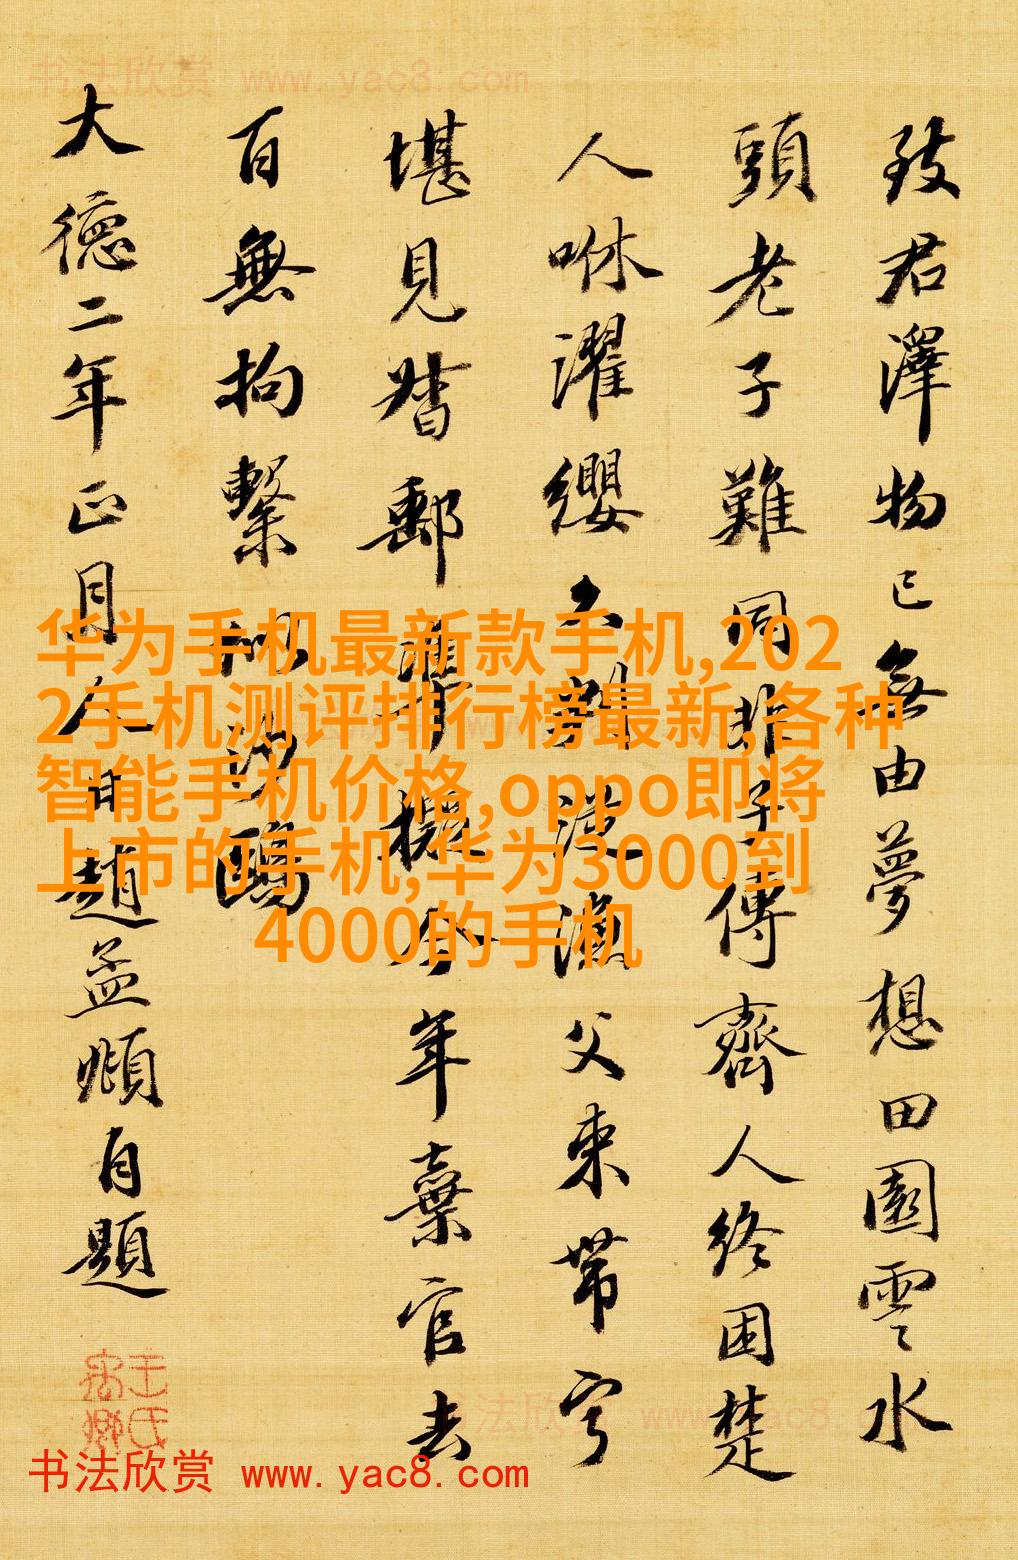 书法欣赏 www.yac8.com
致君澤物已無由夢想田園雲水
頭老子難同非子傳齊人終困楚
人咻濯纓久判從漁父束帶寧
堪見督郵準擬今年棄官去
百無拘繫似沙鷗
大德二年正月人日趙孟頫自題
华为手机最新款手机,202
2手机测评排行榜最新,各种
智能手机价格,oppo即将
上市的手机,华为3000到
4000的手机
书法欣赏 www.yac8.com
书法欣赏 www.yac8.com